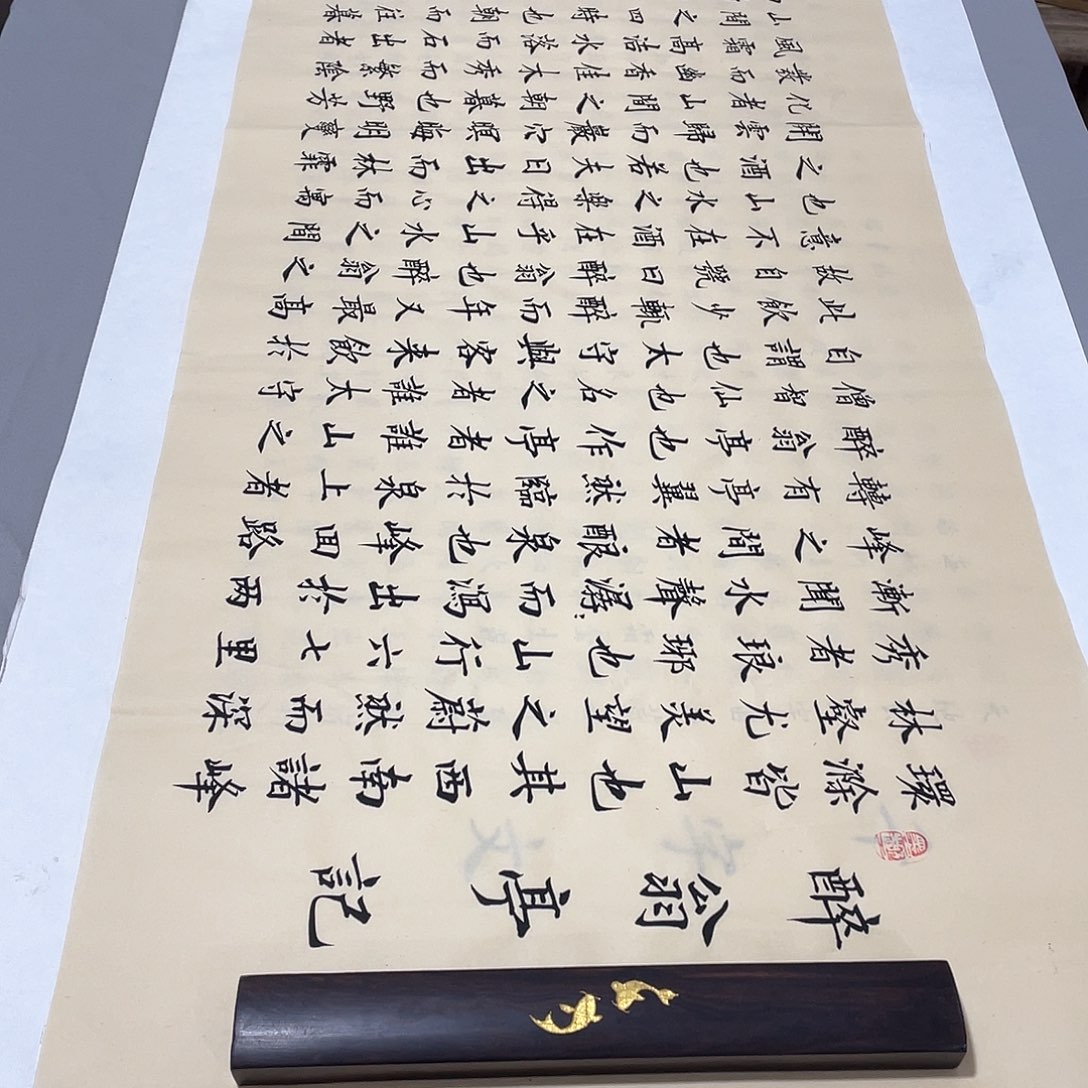 醉翁亭記
環滁皆山也其西南諸峰
林壑尤美望之蔚然而深
秀者琅琊也山行六七里
漸聞水聲潺〻而瀉出於兩
峰之間者釀泉也峰回路
轉有亭翼然臨於泉上者
醉翁亭也作亭者誰山之
僧智仙也名之者誰太守
自謂也太守與客來飲於
此飲少輒醉而年又最高
故自號曰醉翁也醉翁之
意不在酒在乎山水之間
也山水之樂得之心而寓
之酒也若夫日出而林霏
開雲歸而巖穴暝晦明變
化者山間之朝暮也野芳
發而幽香佳木秀而繁陰
風霜高潔水落而石出者
山間之四時也朝而往暮